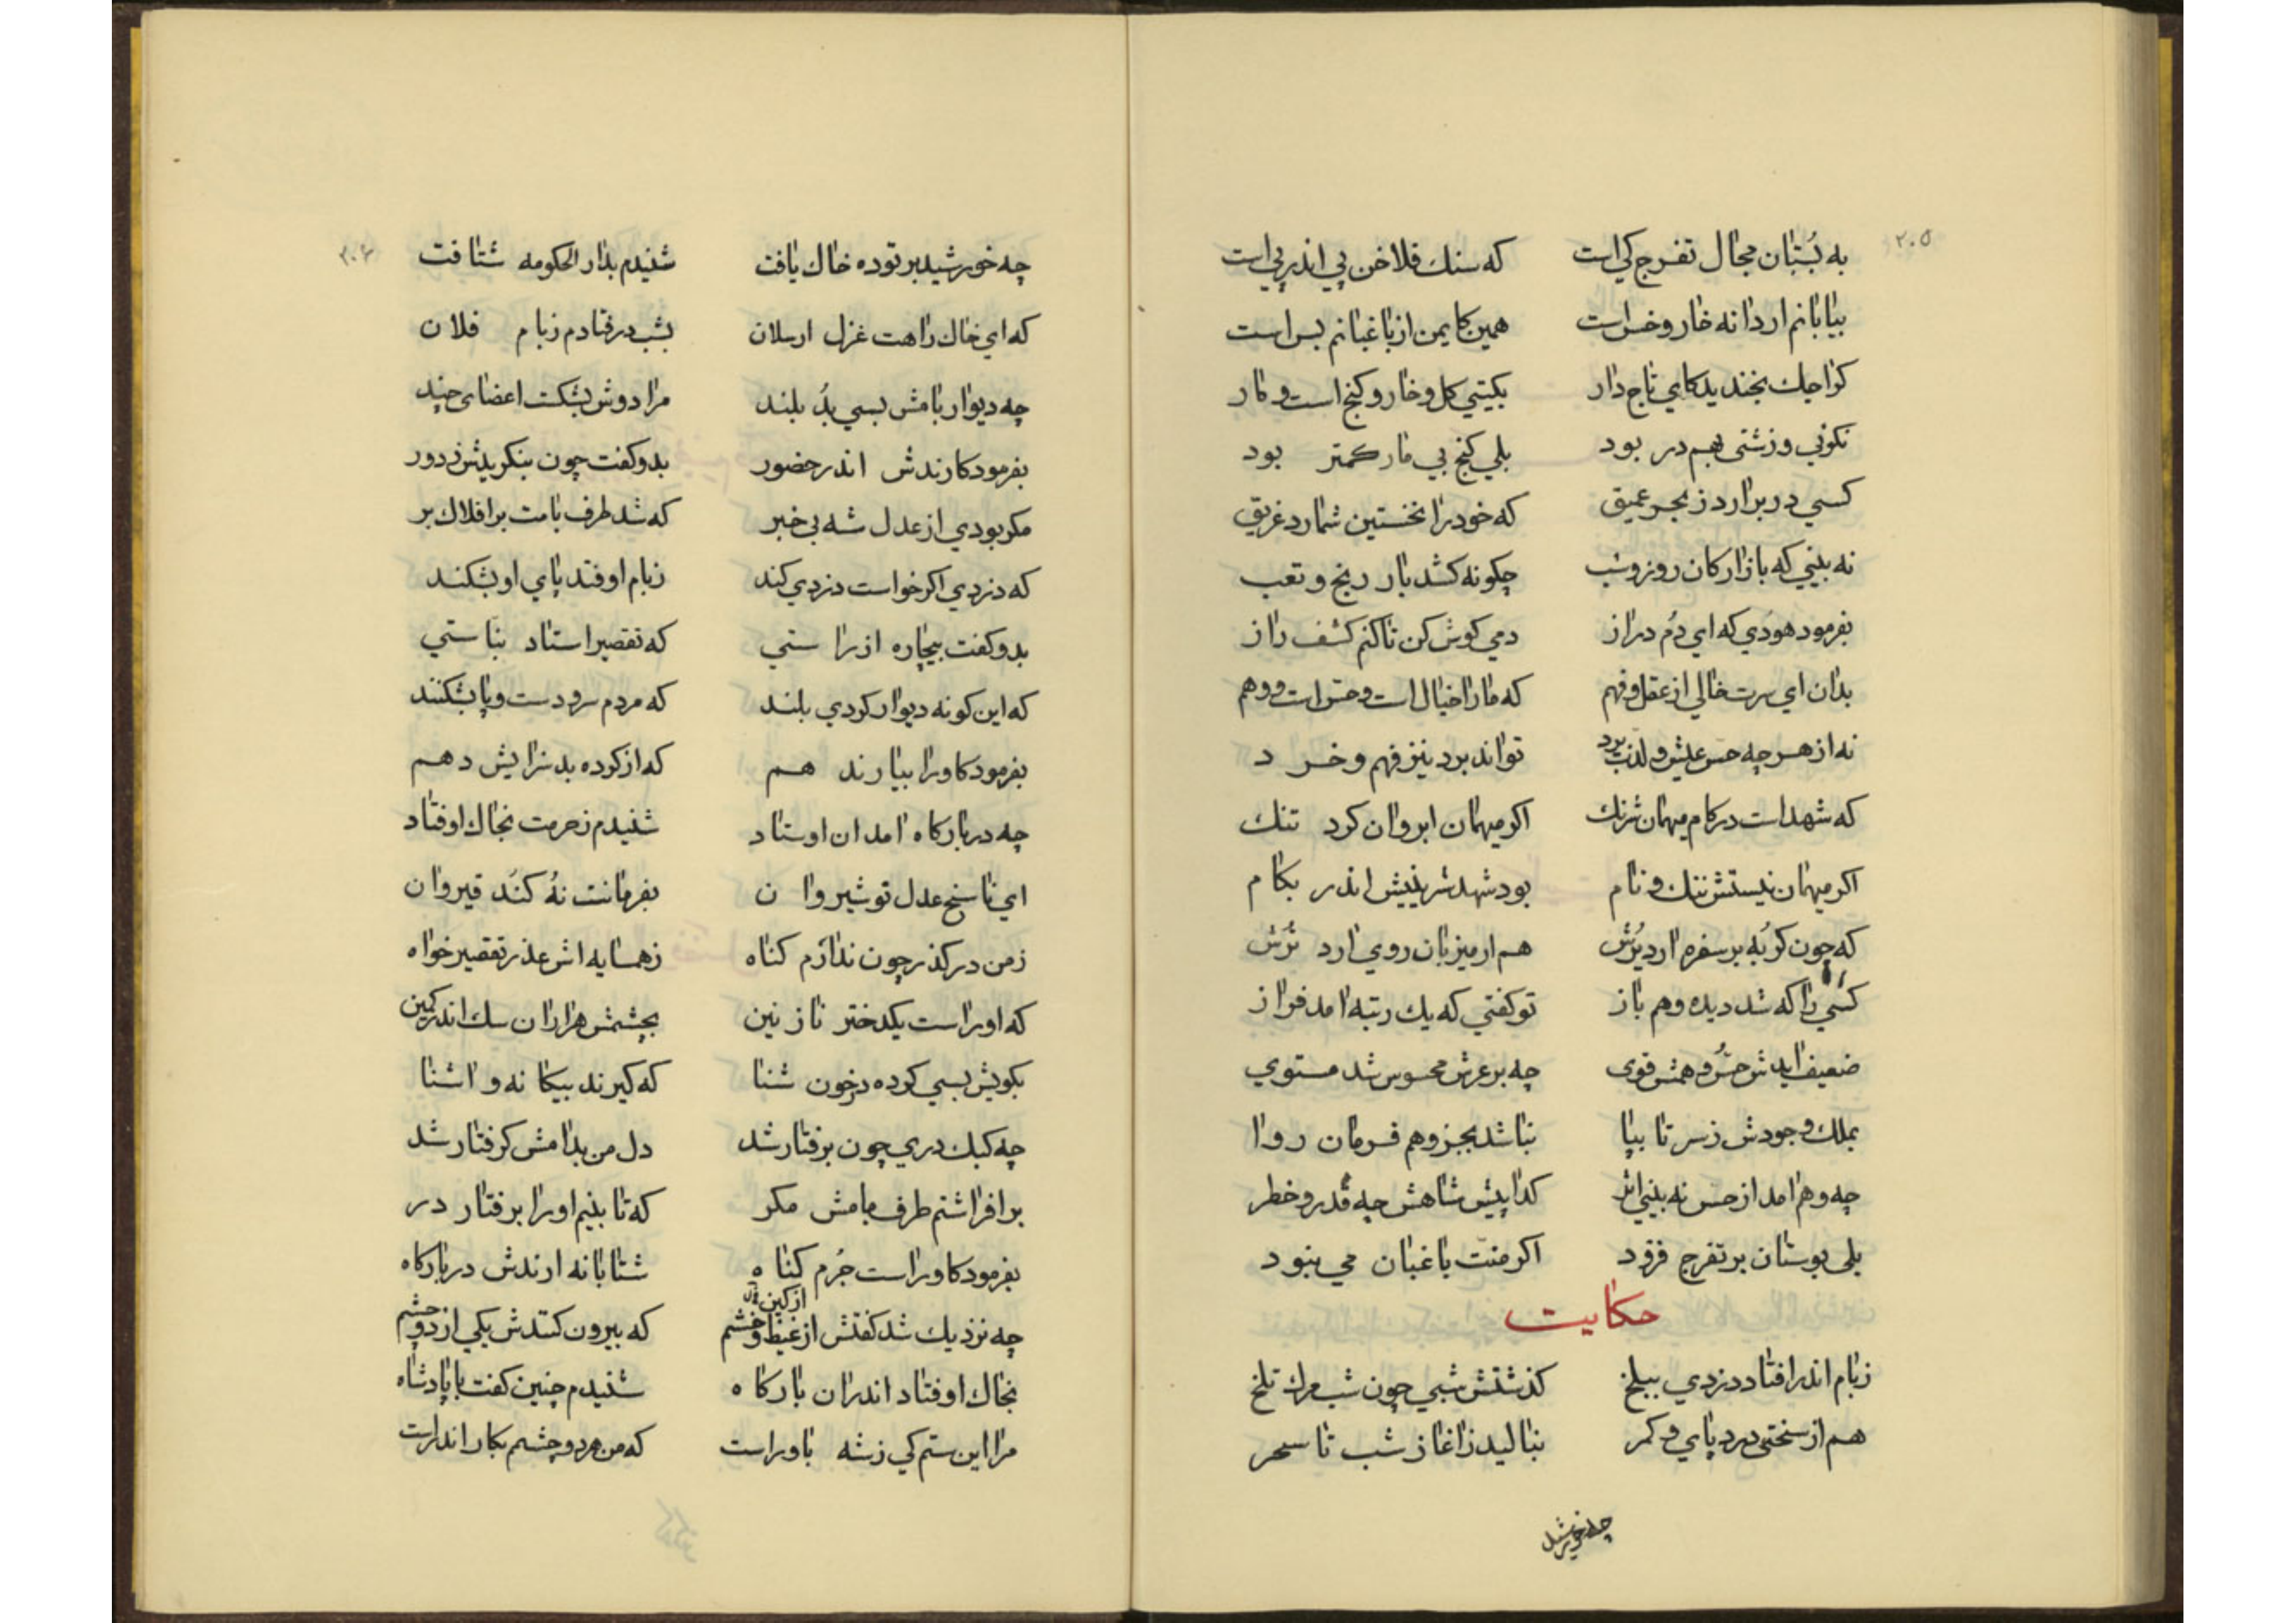 ۲۰۵
به بُستان مجال تفرج کی است که سنك فلاخن پی اندر پی است
بیابانم اردانه خار و خس است همین کایمن از باغبانم بس است
کواجك بخندید کای تاج دار بکیتی کل و خار و کنج است و مار
نکوئی و زشتی بهم در بود بلی کنج بی مار کمتر بود
کسی در برارد ز بحر عمیق که خود را نخستین شمارد غریق
نه بینی که بازارکان روز و شب چکونه کشد بار رنج و تعب
بفرمود هودی که ای دُم دراز دمی کوش کن تا کنم کشف راز
بدان ای سرت خالی از عقل و فهم که ما را خیال است و حس است و وهم
نه از هر چه حس عیش و لذت برد تواند برد نیز فهم و خرد
که شهد است در کام میهمان شرنك اکر میهمان ابروان کرد تنك
اکر میهمان نیستش ننك و نام بود شهد شرینیش اندر بکام
که چون کربه بر سفره ارد یُرُش هم ار میزبان روی ارد تُرُش
کسی را که شد دیده وهم باز تو کفتی که یك رتبه امد فراز
ضعیف ایدش حس و همش قوی چه بر عرش محسوس شد مستوی
بملك وجودش ز سر تا بپا نباشد بجز وهم فرمان روا
چه وهم امد از حس نه بینی اثر کدا پیش شاهش چه قدر و خطر
بلی بوستان بر تفرج فزود اکر منت باغبان می نبود
حکایت
زبام اندر افتاد دزدی ببلخ کذشتش شبی چون شب مرك تلخ
هم از سختی درد پای و کمر بنالید زاغاز شب تا سحر
چه خورشید
چه خورشید بر توده خاك یافت شنیدم بدار الحکومه شتافت
که ای خاك راهت غزل ارسلان بشب در فتادم زبام فلان
چه دیوار بامش بسی بُد بلند مرا دوش بشکت اعضای چند
بفرمود کارندش اندر حضور بدو کفت چون بنکریدش ز دور
مکر بودی از عدل شه بی خبر که شد طرف بامت بر افلاك بر
که دزدی اکر خواست دزدی کند زبام اوفتد پای او بشکند
بدو کفت بیچاره از راستی که تقصیر استاد بناستی
که این کونه دیوار کردی بلند که مردم سر و دست و پا بشکنند
بفرمود کاورا بیارند هم که از کرده بد سزایش دهم
چه در بارکاه امد ان اوستاد شنیدم ز حرمت بخاك اوفتاد
ای ناسخ عدل نوشیروان بفرمانت نُه کنَد قیروان
ز من در کذر چون ندارَم کناه ز همسایه اش عذر تقصیر خواه
که اورا است یکدختر نازنین بچشمش هزاران سك اندر کمین
بکویش بسی کرده در خون شنا که کیرند بیکانه و اشنا
چه کبك دری چون برفتار شد دل من بدامش کرفتار شد
بر افراشتم طرف بامش مکر که تا بینم اورا برفتار در
بفرمود کاورا است جُرم کناه شتابانه ارندش در بارکاه
چه نزدیك شد کفتش از غیظ و خشم که بیرون کنندش یکی از دو چشم
بخاك اوفتاد اندران بارکاه شنیدم چنین کفت با پادشاه
مرا این ستم کی ز شه باور است که من هر دو چشم بکار اندر است